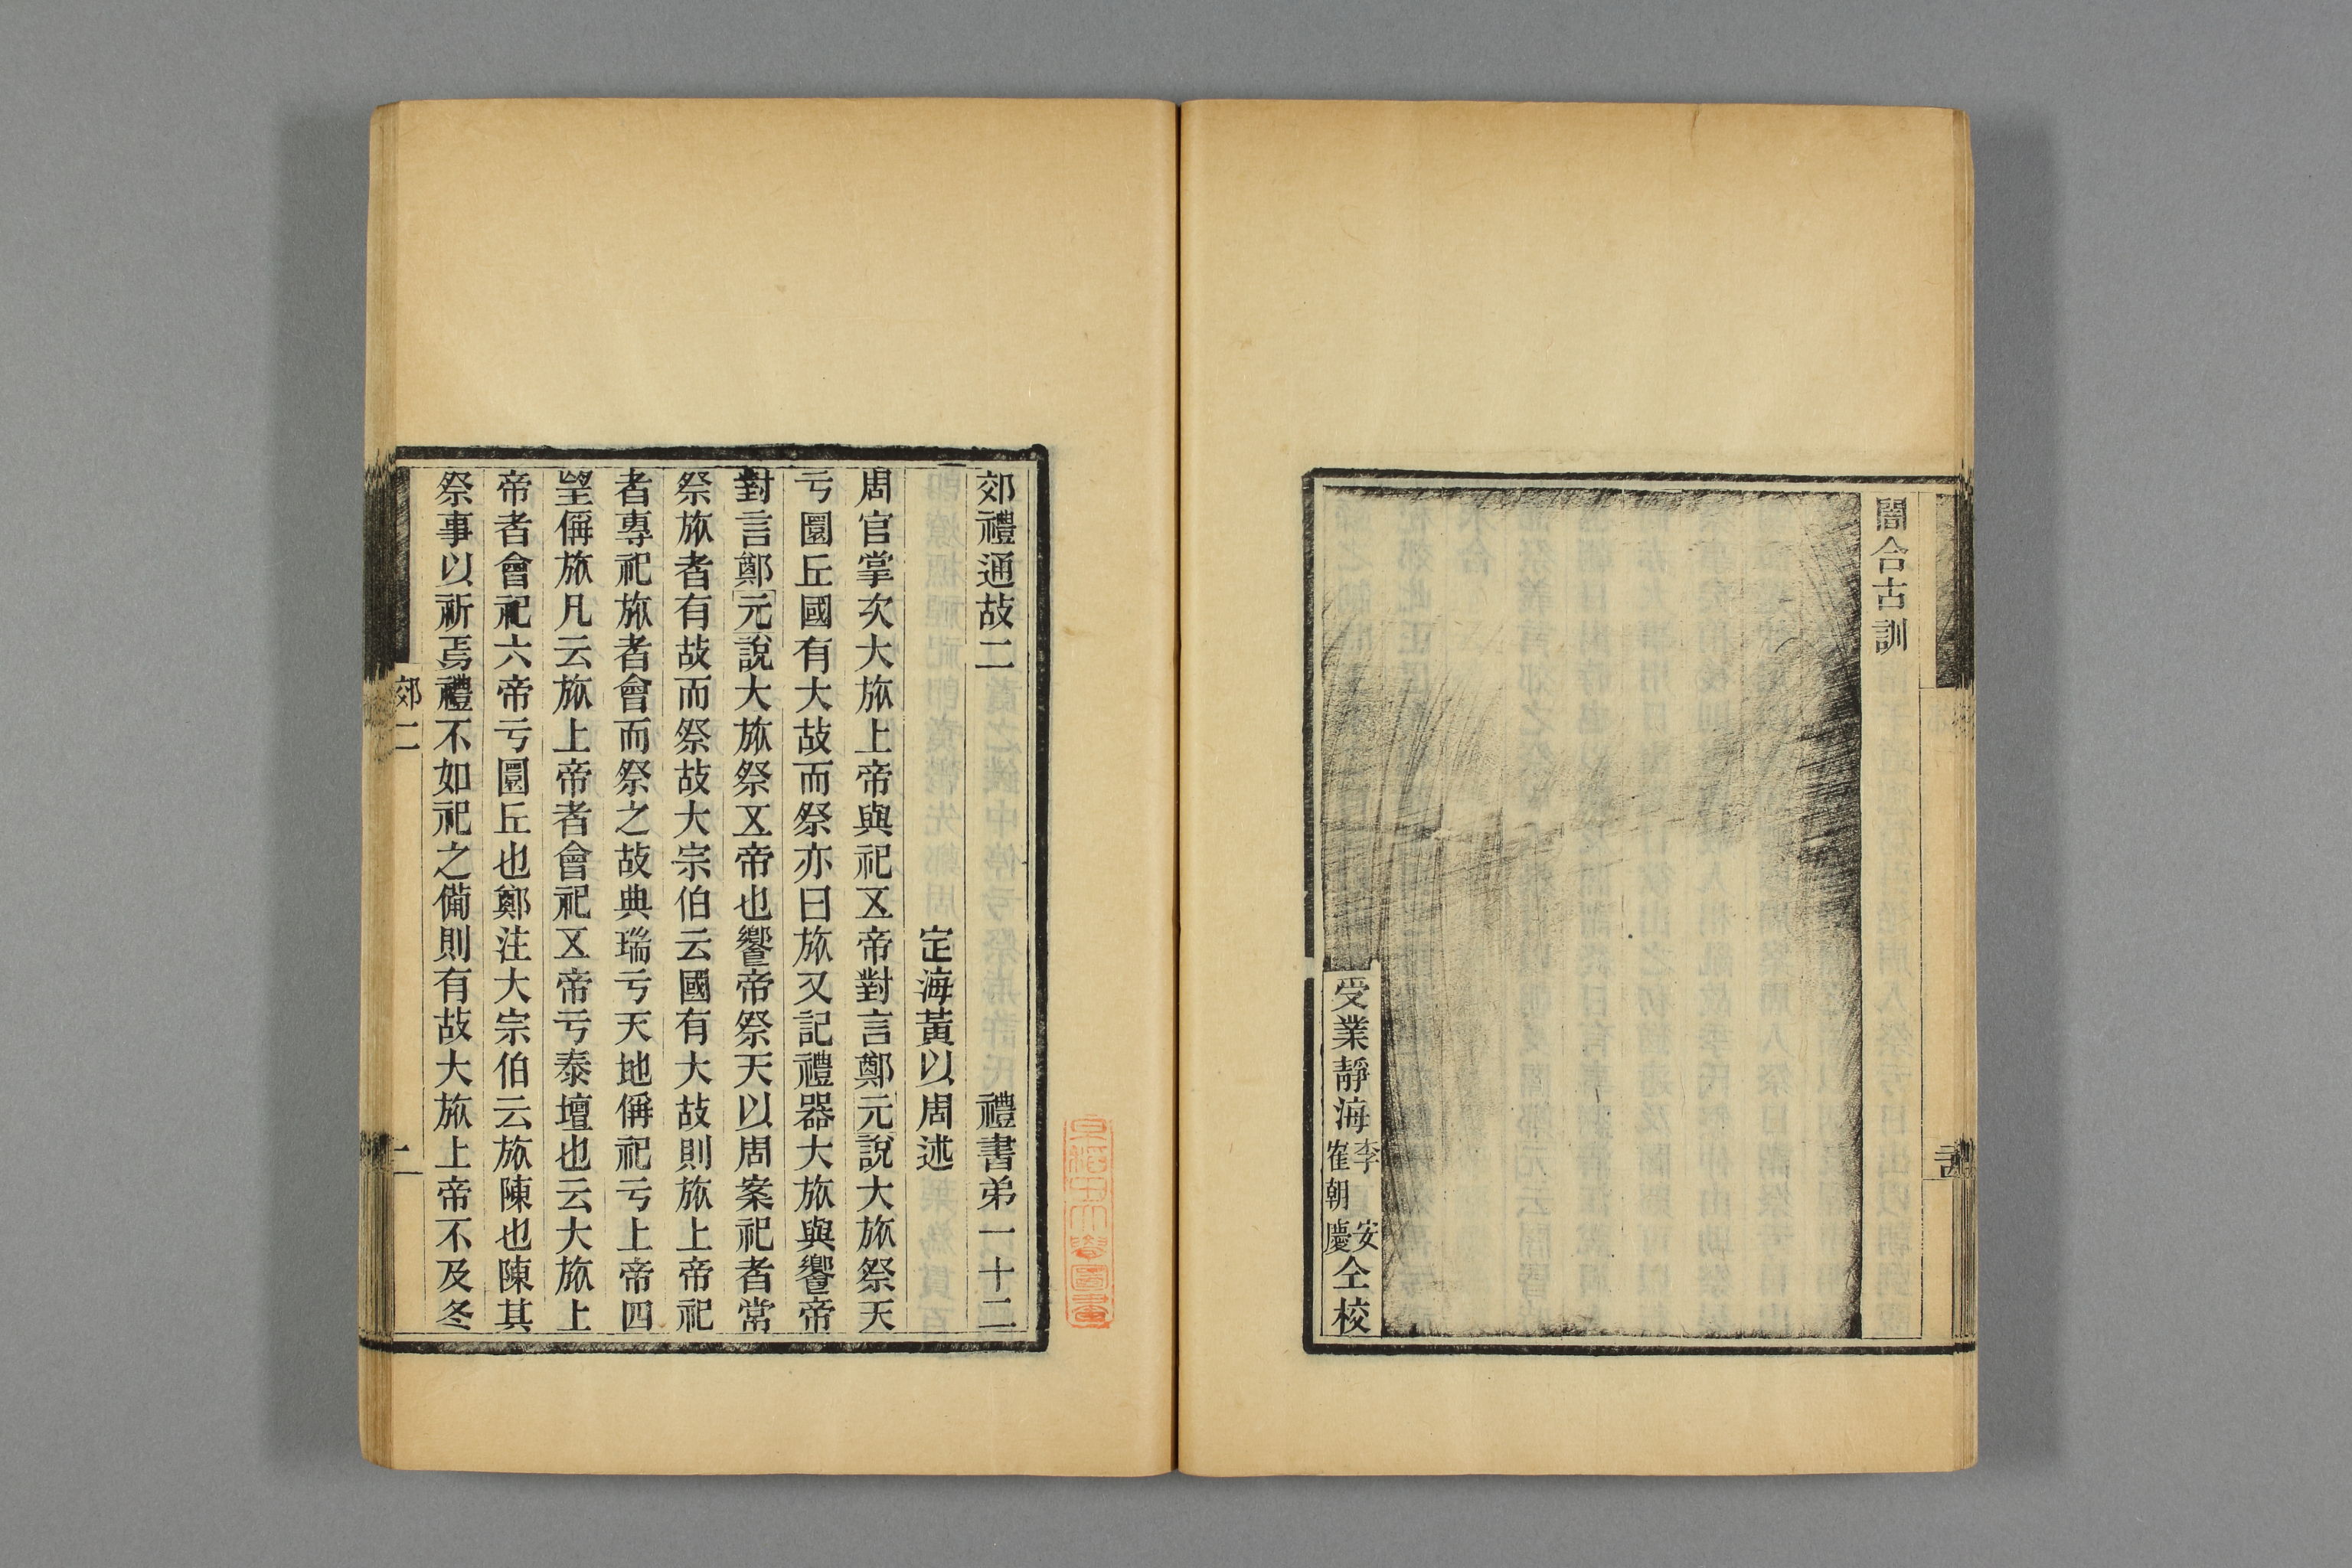 闇合古訓
受業靜海李安崔朝慶仝校
郊禮通故二 禮書弟一十二
定海黃以周述
周官掌次大旅上帝與祀五帝對言鄭元說大旅祭天
亏圜丘國有大故而祭亦曰旅又記禮器大旅與饗帝
對言鄭元說大旅祭五帝也饗帝祭天以周案祀者常
祭旅者有故而祭故大宗伯云國有大故則旅上帝祀
者專祀旅者會而祭之故典瑞亏天地偁祀亏上帝四
望偁旅凡云旅上帝者會祀五帝亏泰壇也云大旅上
帝者會祀六帝亏圜丘也鄭注大宗伯云旅陳也陳其
祭事以祈焉禮不如祀之備則有故大旅上帝不及冬
郊二
一